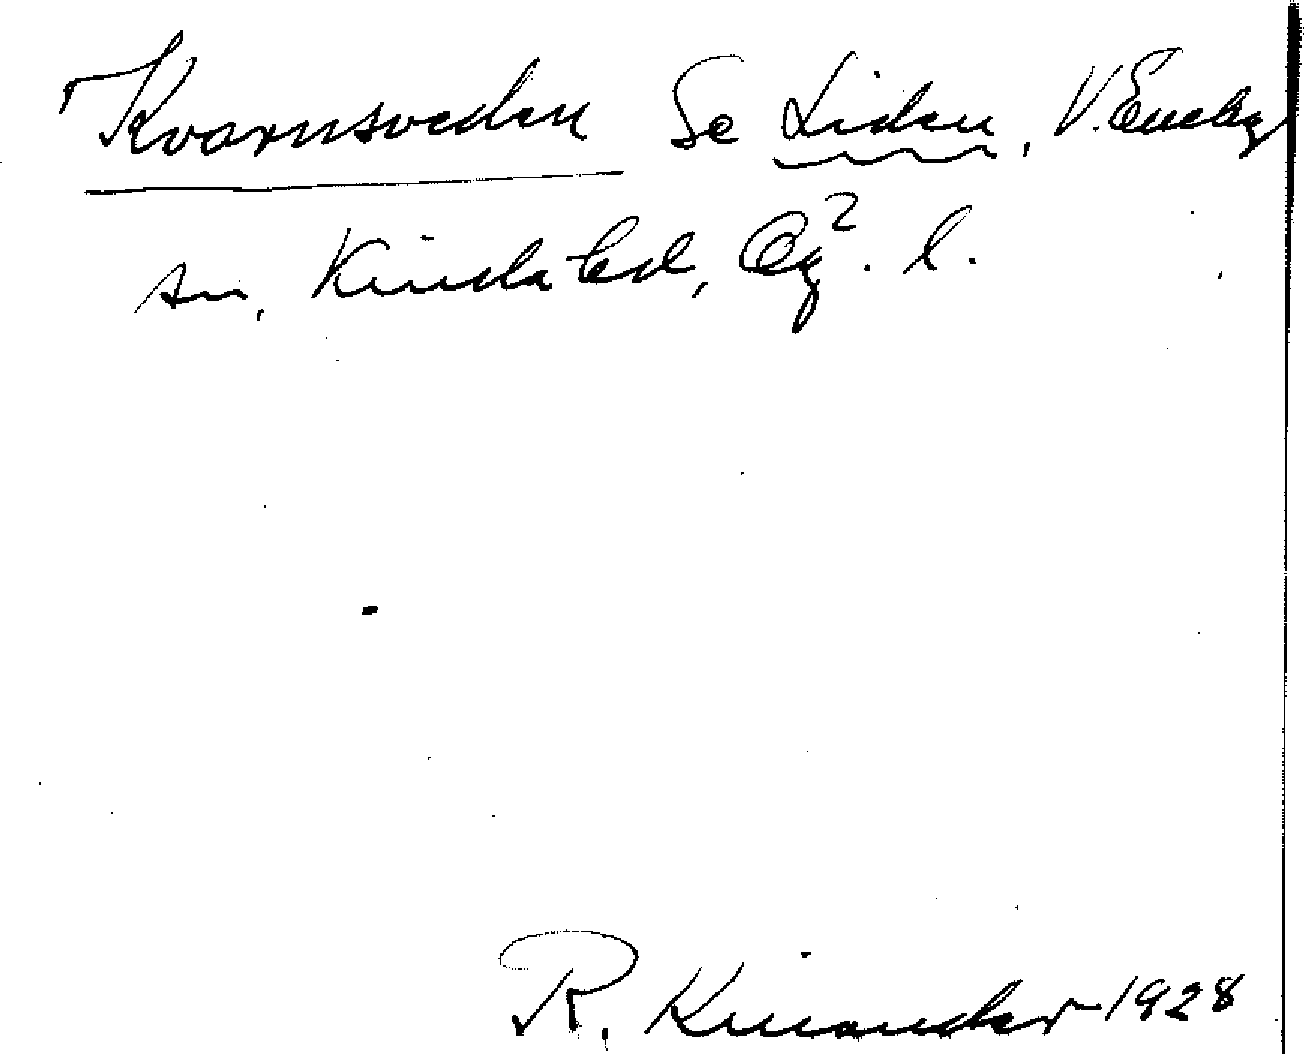 Kvarnsveden Se Liden, V. Eneby
sn, Kinda hd, Ög². l.
R. Kinander 1928